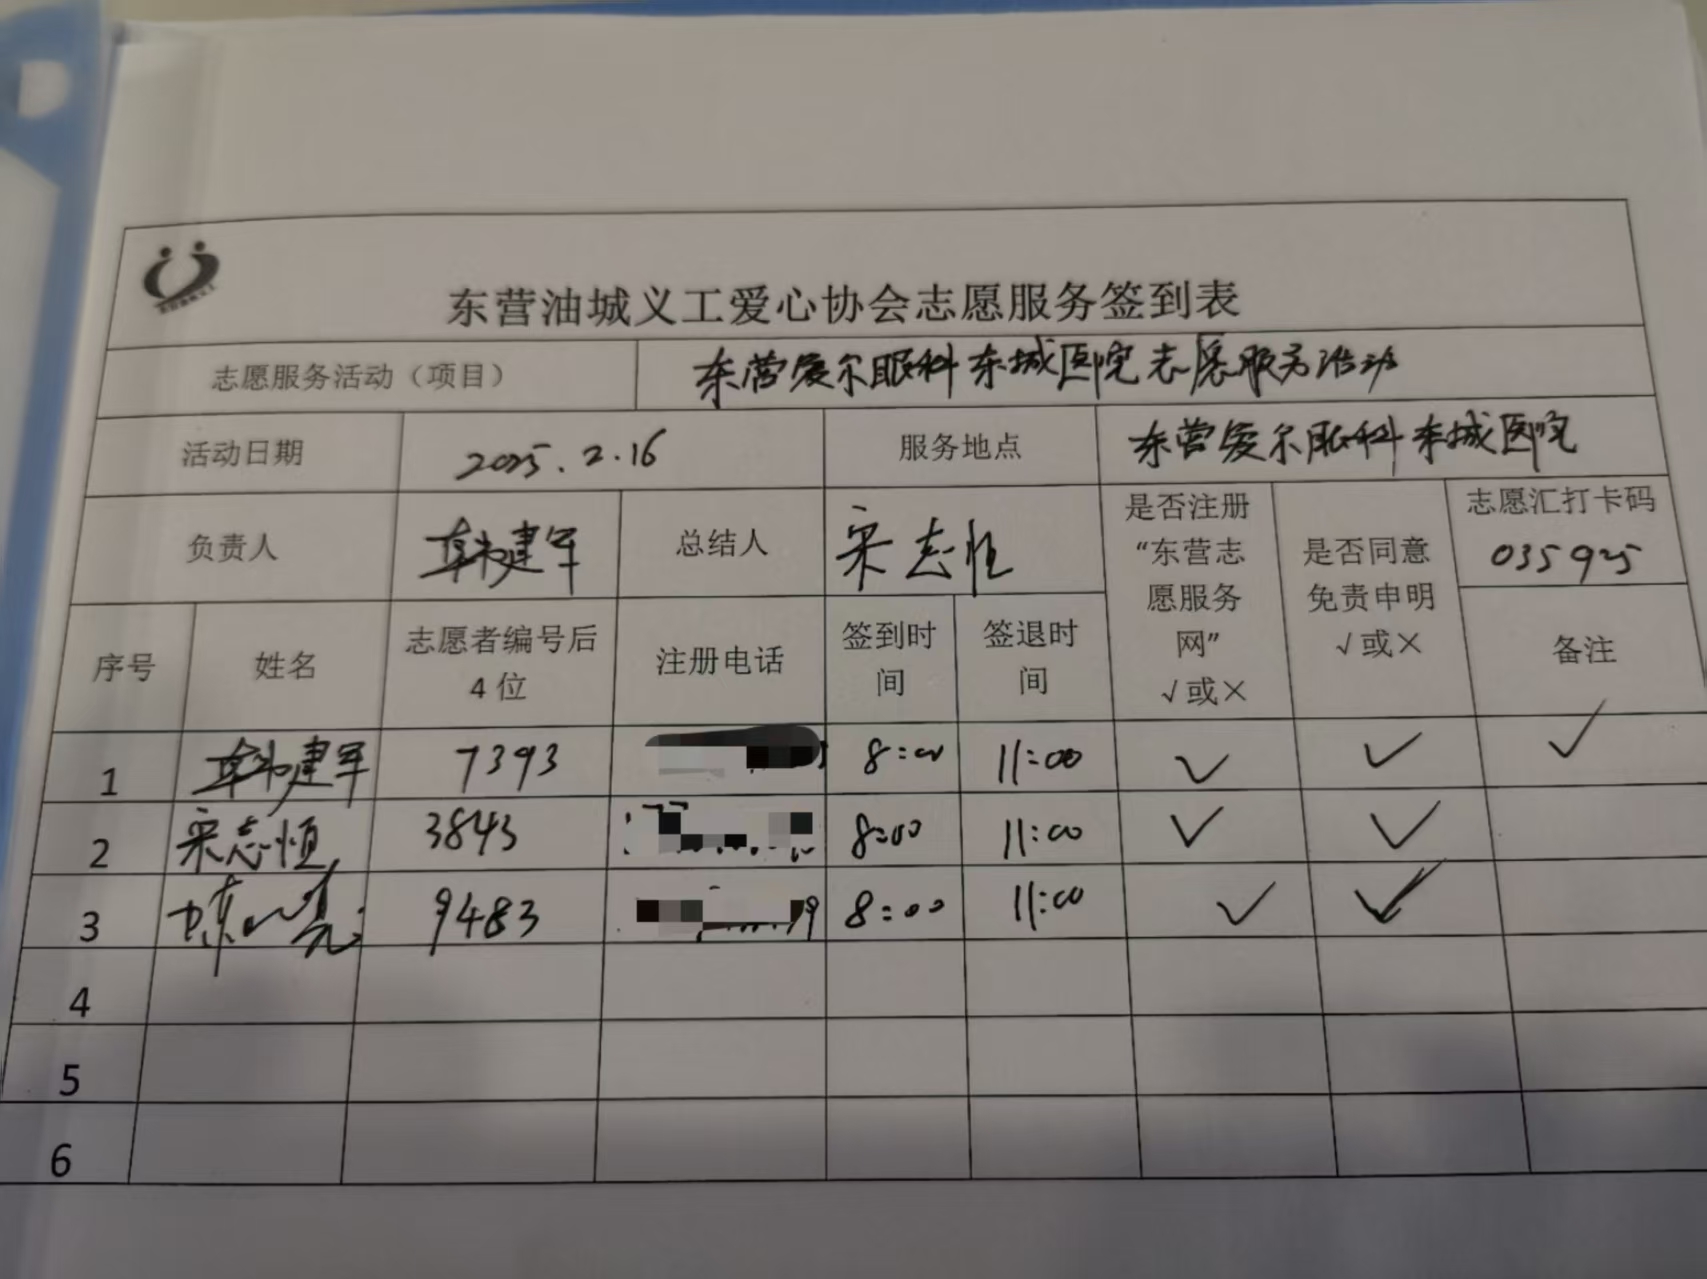 东营油城义工爱心协会志愿服务签到表
志愿服务活动（项目） 东营爱尔眼科东城医院志愿服务活动
活动日期 2025.2.16 服务地点 东营爱尔眼科东城医院
负责人 韩建军 总结人 宋志恒 是否注册“东营志愿服务网”√或× 是否同意免责申明√或× 志愿汇打卡码 035925
序号 姓名 志愿者编号后4位 注册电话 签到时间 签退时间 备注
1 韩建军 7393 8:00 11:00 ✓ ✓ ✓
2 宋志恒 3843 8:00 11:00 ✓ ✓
3 9483 8:00 11:00 ✓ ✓
4
5
6